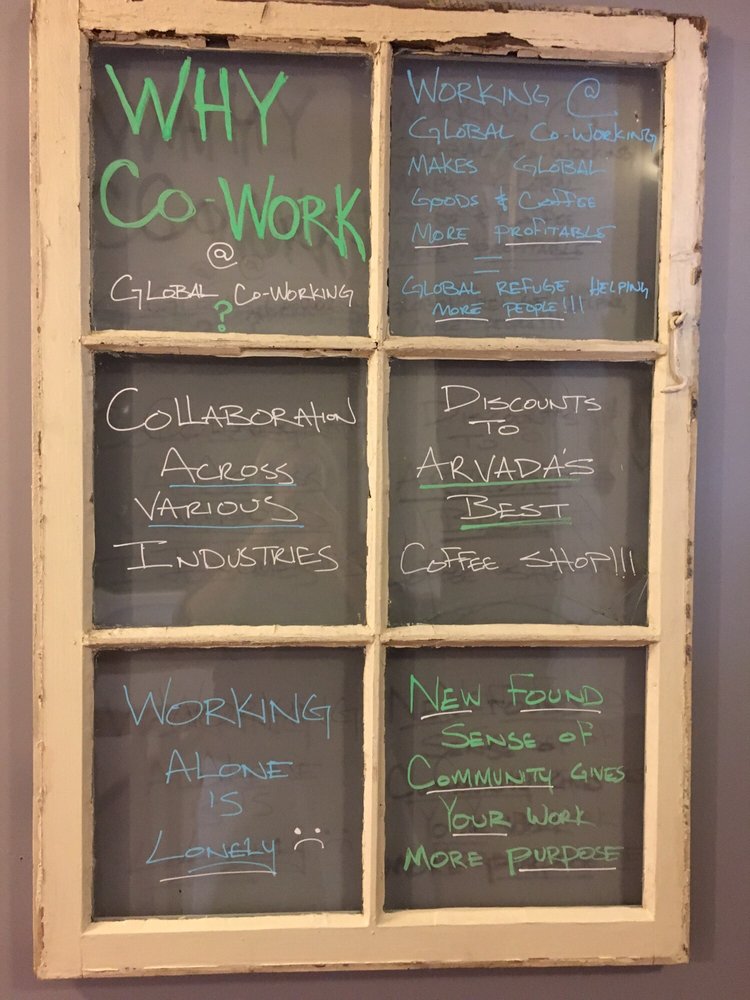 WHY
CO-WORK
@
GLOBAL CO-WORKING
?
WORKING @
GLOBAL CO-WORKING
MAKES GLOBAL
GOODS & COFFEE
MORE PROFITABLE
=
GLOBAL REFUGE HELPING
MORE PEOPLE!!!
COLLABORATION
ACROSS
VARIOUS
INDUSTRIES
DISCOUNTS
TO
ARVADA'S
BEST
COFFEE SHOP!!!
WORKING
ALONE
IS
LONELY :(
NEW FOUND
SENSE OF
COMMUNITY GIVES
YOUR WORK
MORE PURPOSE